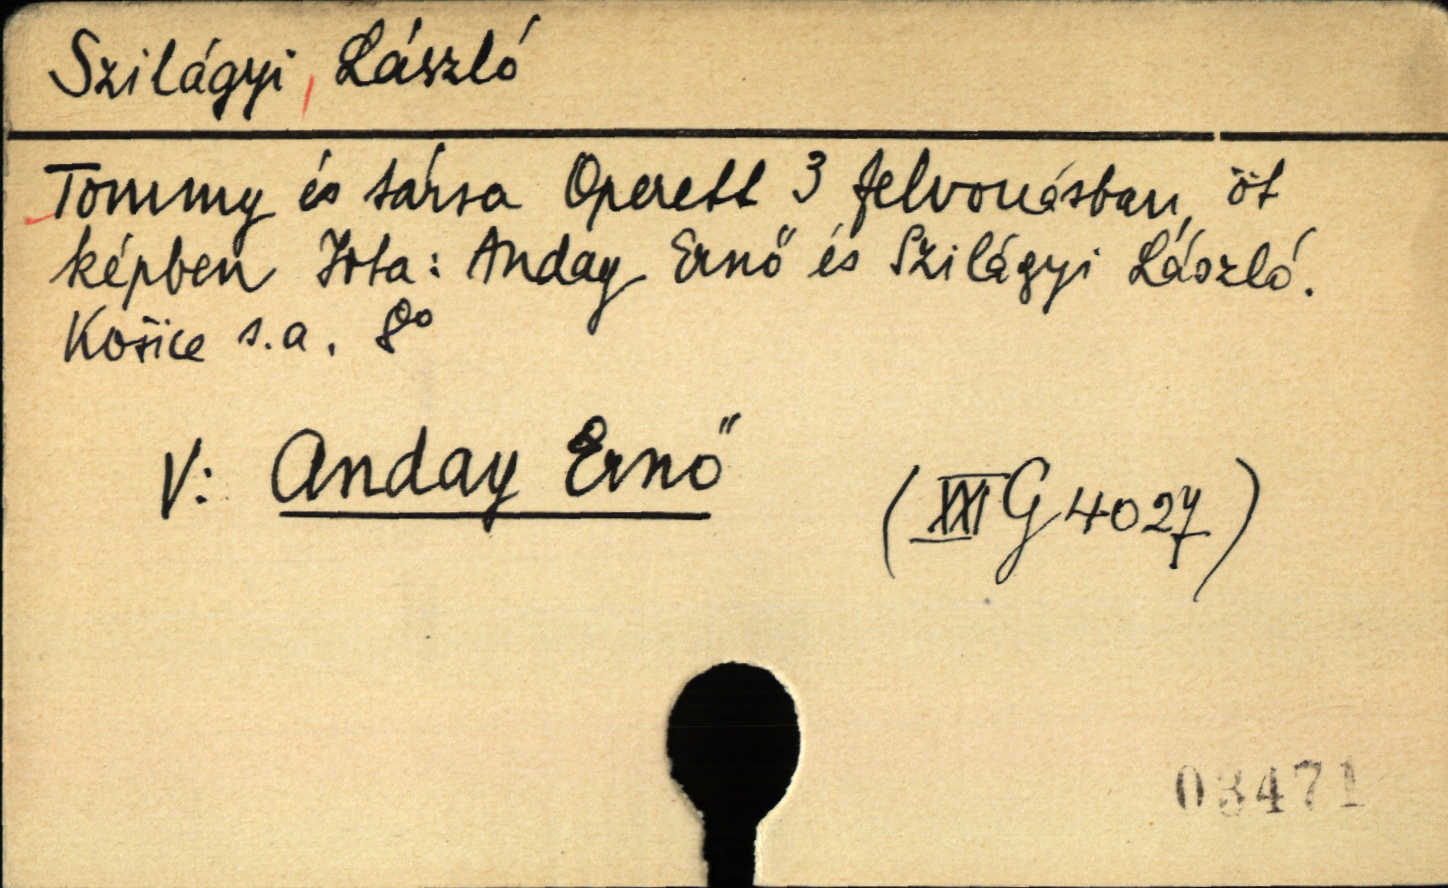 Szilágyi, László
Tommy és társa Operett 3 felvonásban, öt
képben Irta: Anday Ernő és Szilágyi László.
Košice s.a. 8°
V: Anday Ernő
(XXI G 4027)
03471